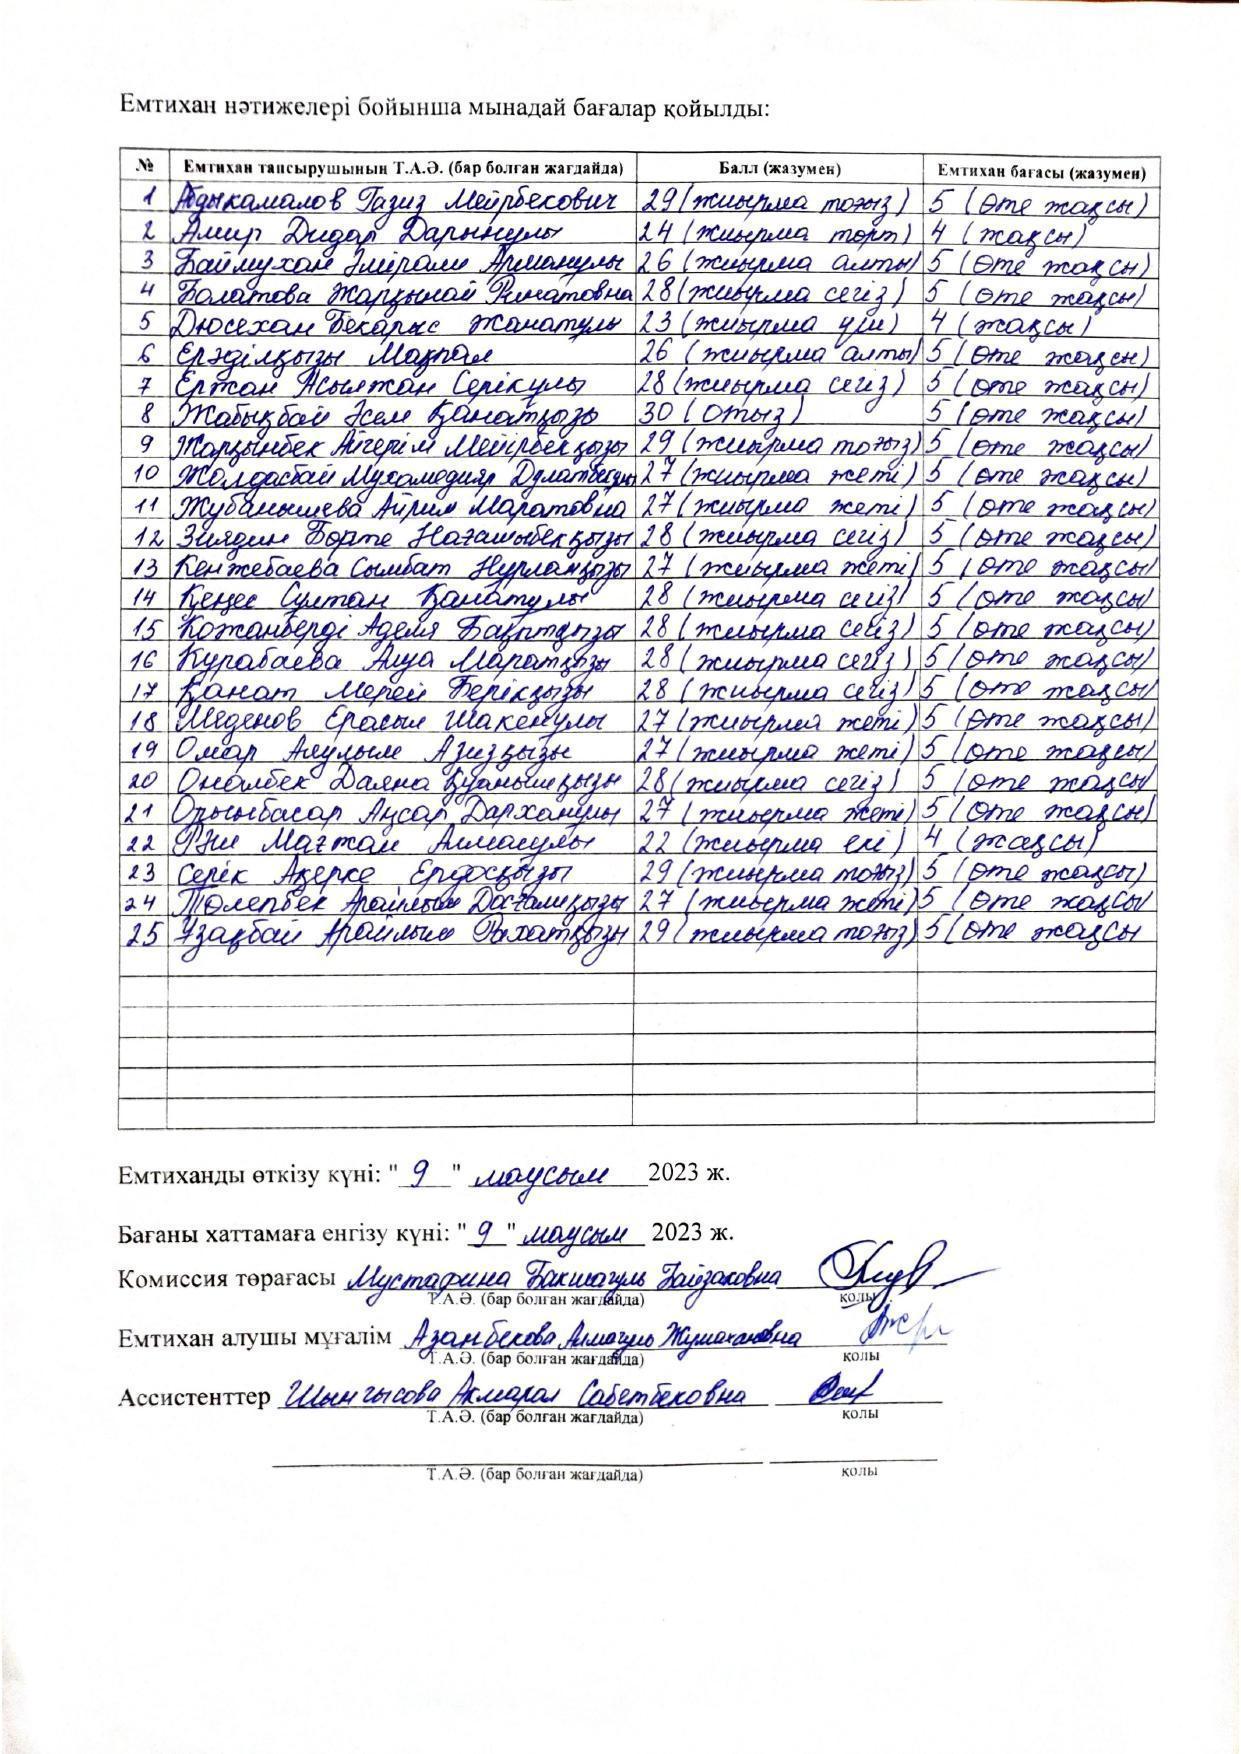 Емтихан нәтижелері бойынша мынадай бағалар қойылды:
№ Емтихан тапсырушының Т.А.Ә. (бар болған жағдайда) Балл (жазумен) Емтихан бағасы (жазумен)
1 Абдыкамалов Газиз Мейрбекович 29 (жиырма тоғыз) 5 (өте жақсы)
2 Амир Дидар Дарынұлы 24 (жиырма төрт) 4 (жақсы)
3 Баймухан Әмірали Арманұлы 26 (жиырма алты) 5 (өте жақсы)
4 Болатова Жарқынай Ринатовна 28 (жиырма сегіз) 5 (өте жақсы)
5 Дюсехан Бекарыс Жанатұлы 23 (жиырма үш) 4 (жақсы)
6 Ерәділқызы Мақпал 26 (жиырма алты) 5 (өте жақсы)
7 Ержан Асылжан Серікұлы 28 (жиырма сегіз) 5 (өте жақсы)
8 Жабықбай Әсем Қанатқызы 30 (отыз) 5 (өте жақсы)
9 Жарқынбек Айгерім Мейірбекқызы 29 (жиырма тоғыз) 5 (өте жақсы)
10 Жолдасбай Мухамедияр 27 (жиырма жеті) 5 (өте жақсы)
11 Жубанышева Айрим Маратовна 27 (жиырма жеті) 5 (өте жақсы)
12 Зиядин Бөрте Нағашыбекқызы 28 (жиырма сегіз) 5 (өте жақсы)
13 Кенжебаева Сымбат Нурланқызы 27 (жиырма жеті) 5 (өте жақсы)
14 Кеңес Султан Қанатұлы 28 (жиырма сегіз) 5 (өте жақсы)
15 Кожанберді Аделя Бақытқызы 28 (жиырма сегіз) 5 (өте жақсы)
16 Курабаева Алуа Маратқызы 28 (жиырма сегіз) 5 (өте жақсы)
17 Қанат Мерей Берікқызы 28 (жиырма сегіз) 5 (өте жақсы)
18 Меденов Ерасыл Шакенұлы 27 (жиырма жеті) 5 (өте жақсы)
19 Омар Аяулым Азизқызы 27 (жиырма жеті) 5 (өте жақсы)
20 Оналбек Даяна Қуанышқызы 28 (жиырма сегіз) 5 (өте жақсы
21 Орынбасар Аңсар Дарханұлы 27 (жиырма жеті) 5 (өте жақсы)
22 Мағжан Алмасұлы 22 (жиырма екі) 4 (жақсы)
23 Серік Ақерке Ердосқызы 29 (жиырма тоғыз) 5 (өте жақсы)
24 Төлепбек Арайлым Досғалиқызы 27 (жиырма жеті) 5 (өте жақсы
25 Ұзақбай Арайлым Рахатқызы 29 (жиырма тоғыз) 5 (өте жақсы
Емтиханды өткізу күні: " 9 " маусым 2023 ж.
Бағаны хаттамаға енгізу күні: " 9 " маусым 2023 ж.
Комиссия төрағасы Мустафина Бакшагуль Байзаковна
Т.А.Ә. (бар болған жағдайда) қолы
Емтихан алушы мұғалім Азанбекова Алмагуль Жумахановна
Т.А.Ә. (бар болған жағдайда) қолы
Ассистенттер Шынгысова Акмарал Сабетбековна
Т.А.Ә. (бар болған жағдайда) қолы
Т.А.Ә. (бар болған жағдайда) қолы